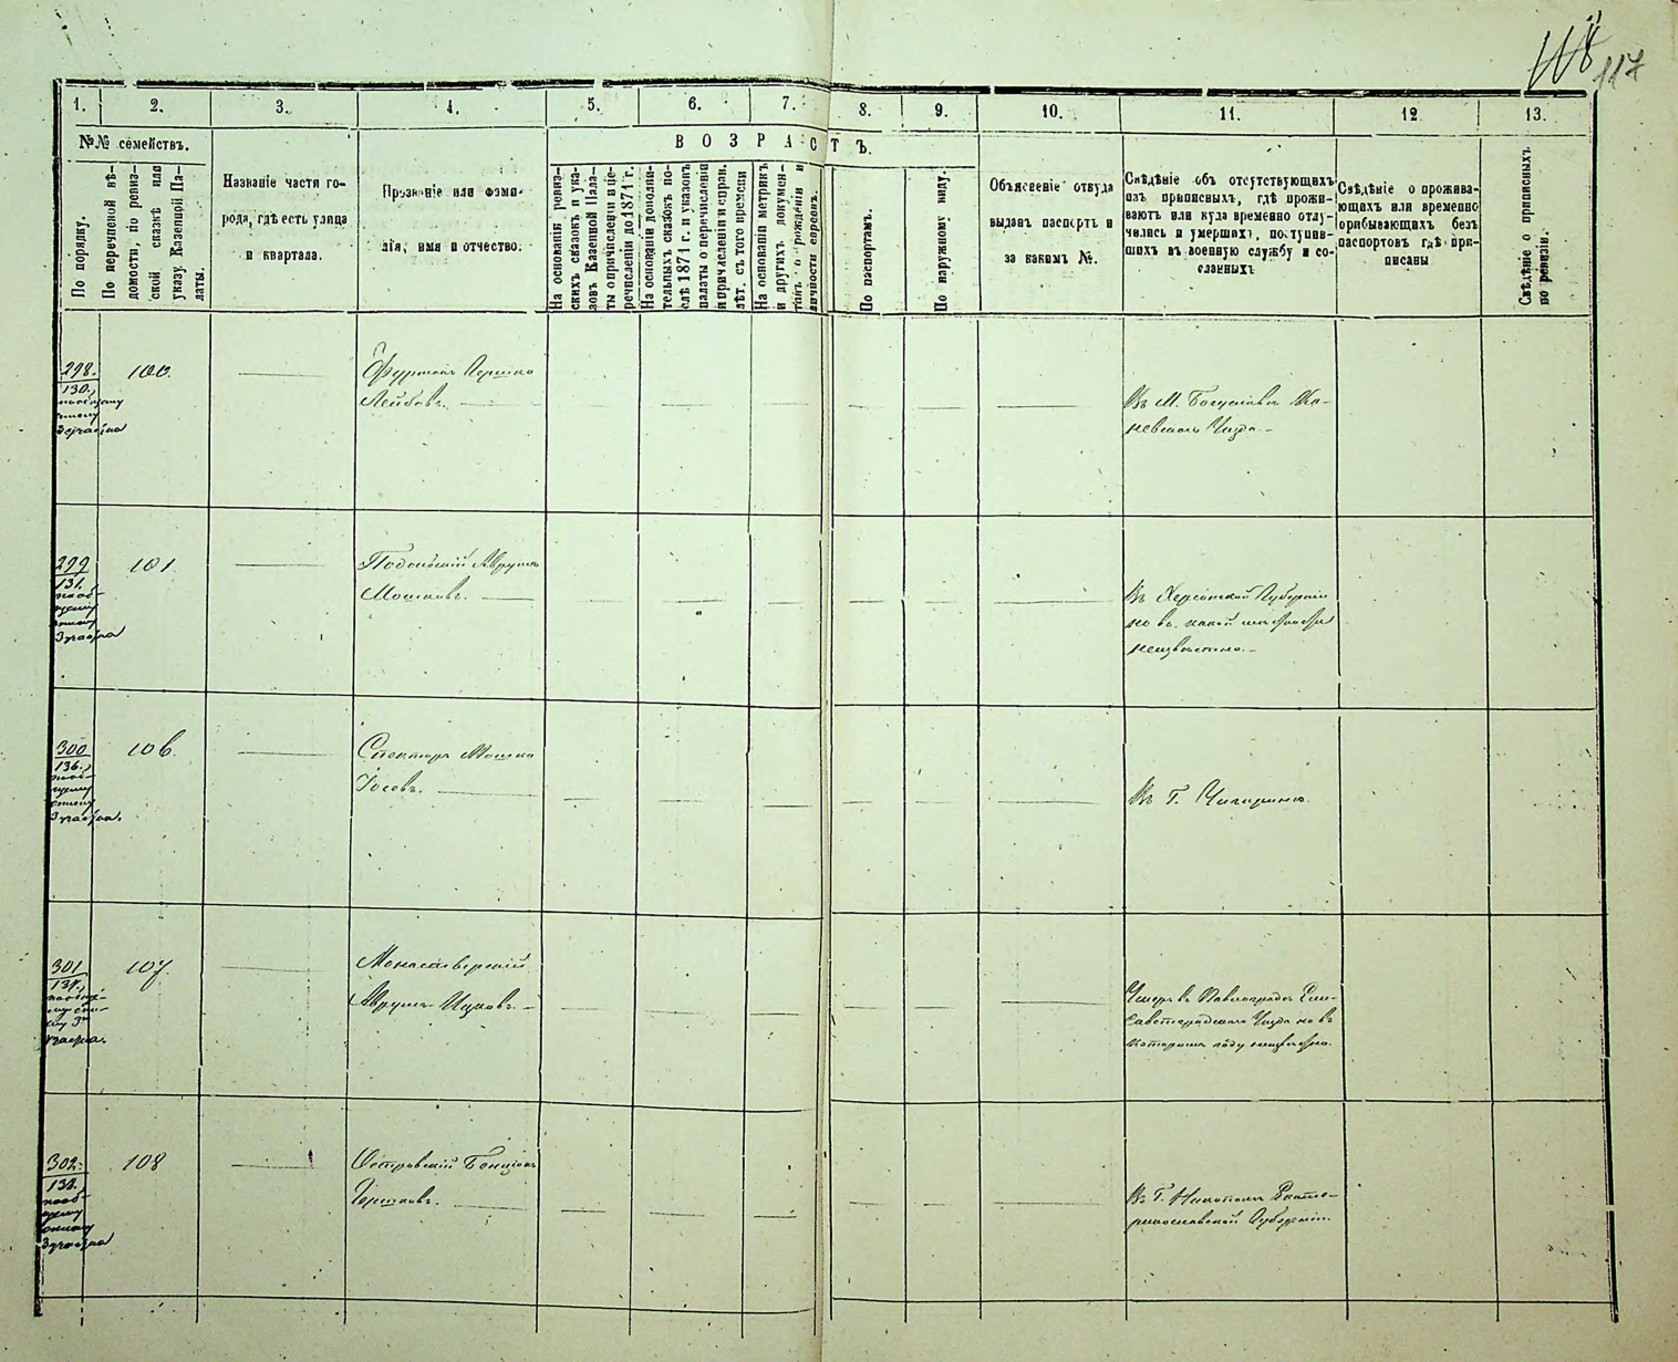 117
1. 2. 3. 4. 5. 6. 7. 8. 9. 10. 11. 12. 13.
№№ семействъ.
По порядку.
По перечневой вѣ-
домости, по ревиз-
ской сказкѣ или
указу Казенной Па-
латы.
Названіе части го-
рода, гдѣ есть улица
и квартала.
Прозваніе или фами-
лія, имя и отчество.
ВОЗРАСТЪ.
На основаніи ревиз-
скихъ сказокъ и ука-
зовъ Казенной Пала-
ты о причисленіи и пе-
речисленіи до 1871 г.
На основаніи дополни-
тельныхъ сказокъ по-
слѣ 1871 г. и указовъ
палаты о перечисленіи
и причисленіи и справ.
лѣт. съ того времени
На основаніи метрикъ
и другихъ докумен-
товъ о рожденіи и
личности евреевъ.
По паспортамъ.
По наружному виду.
Объясненіе откуда
выданъ паспортъ и
за какимъ №.
Свѣдѣніе объ отсутствующихъ
изъ приписныхъ, гдѣ прожи-
ваютъ или куда временно отлу-
чились и умершихъ, поступив-
шихъ въ военную службу и со-
сланныхъ
Свѣдѣніе о прожива-
ющихъ или временно
прибывающихъ безъ
паспортовъ гдѣ при-
писаны
Свѣдѣніе о приписныхъ
по ревизіи.
298. 100.
130.
Фурманъ Гершко
Лейбовъ.
Въ М. Богуславѣ Ка-
невскаго Уѣзда.
299 101
131.
Подольскій Аврумъ
Мошковъ.
Въ Херсонской Губерніи
но въ какой мѣстности
неизвѣстно.
300 106.
136.
Спекторъ Мошко
Іосевъ.
Въ Г. Чигиринѣ.
301 107.
137.
Монастерскій
Аврумъ Ицковъ.
Умеръ въ Павлоградѣ Ели-
саветградскаго Уѣзда но въ
которомъ году неизвѣстно.
302. 108
138.
Островскій Бенціонъ
Гершковъ.
Въ Г. Никополѣ Екате-
ринославской Губерніи.